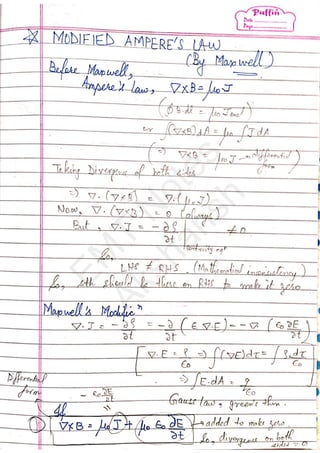 Puffin
Date
Page
☆ MODIFIED AMPERE'S LAW
(By Maxwell)
Before Maxwell,
Ampere's law, ∇×B = μ₀J
(∮B.dl = μ₀
or ∫(∇×B)dA = μ₀ ∫J dA
⇒ ∇×B = μ₀J → differential form)
Taking Divergence of both sides
⇒ ∇.(∇×B) = ∇.(μ₀J)
Now, ∇.(∇×B) = 0 (always)
But, ∇.J = -∂ρ/∂t ≠ 0
continuity eqⁿ
So,
LHS ≠ RHS (Mathematical inconsistency)
So, sth should be there on RHS to make it zero
Maxwell's Modificⁿ
∇.J = -∂ρ/∂t = -∂/∂t (ε ∇.E) = -∇ (ε₀ ∂E/∂t)
∇.E = ρ/ε₀ ⇒ ∫(∇E)dτ = ∫ρ dτ/ε₀
⇒ ∫E.dA = q/ε₀
Gauss law, green's thm.
Differential form
-ε₀ ∂E/∂t
If
∇×B = μ₀J + μ₀ε₀ ∂E/∂t → added to make zero
So, divergence on both sides = 0